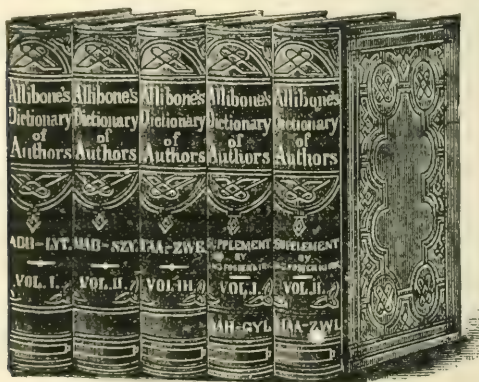 Allibone's
Dictionary
of
Authors
VOL. I.
Allibone's
Dictionary
of
Authors
MAB–SZY.
VOL. II.
Allibone's
Dictionary
of
Authors
TAA–ZWE.
VOL. III.
Allibone's
Dictionary
of
Authors
SUPPLEMENT
BY
VOL. I.
Allibone's
Dictionary
of
Authors
SUPPLEMENT
BY
VOL. II.